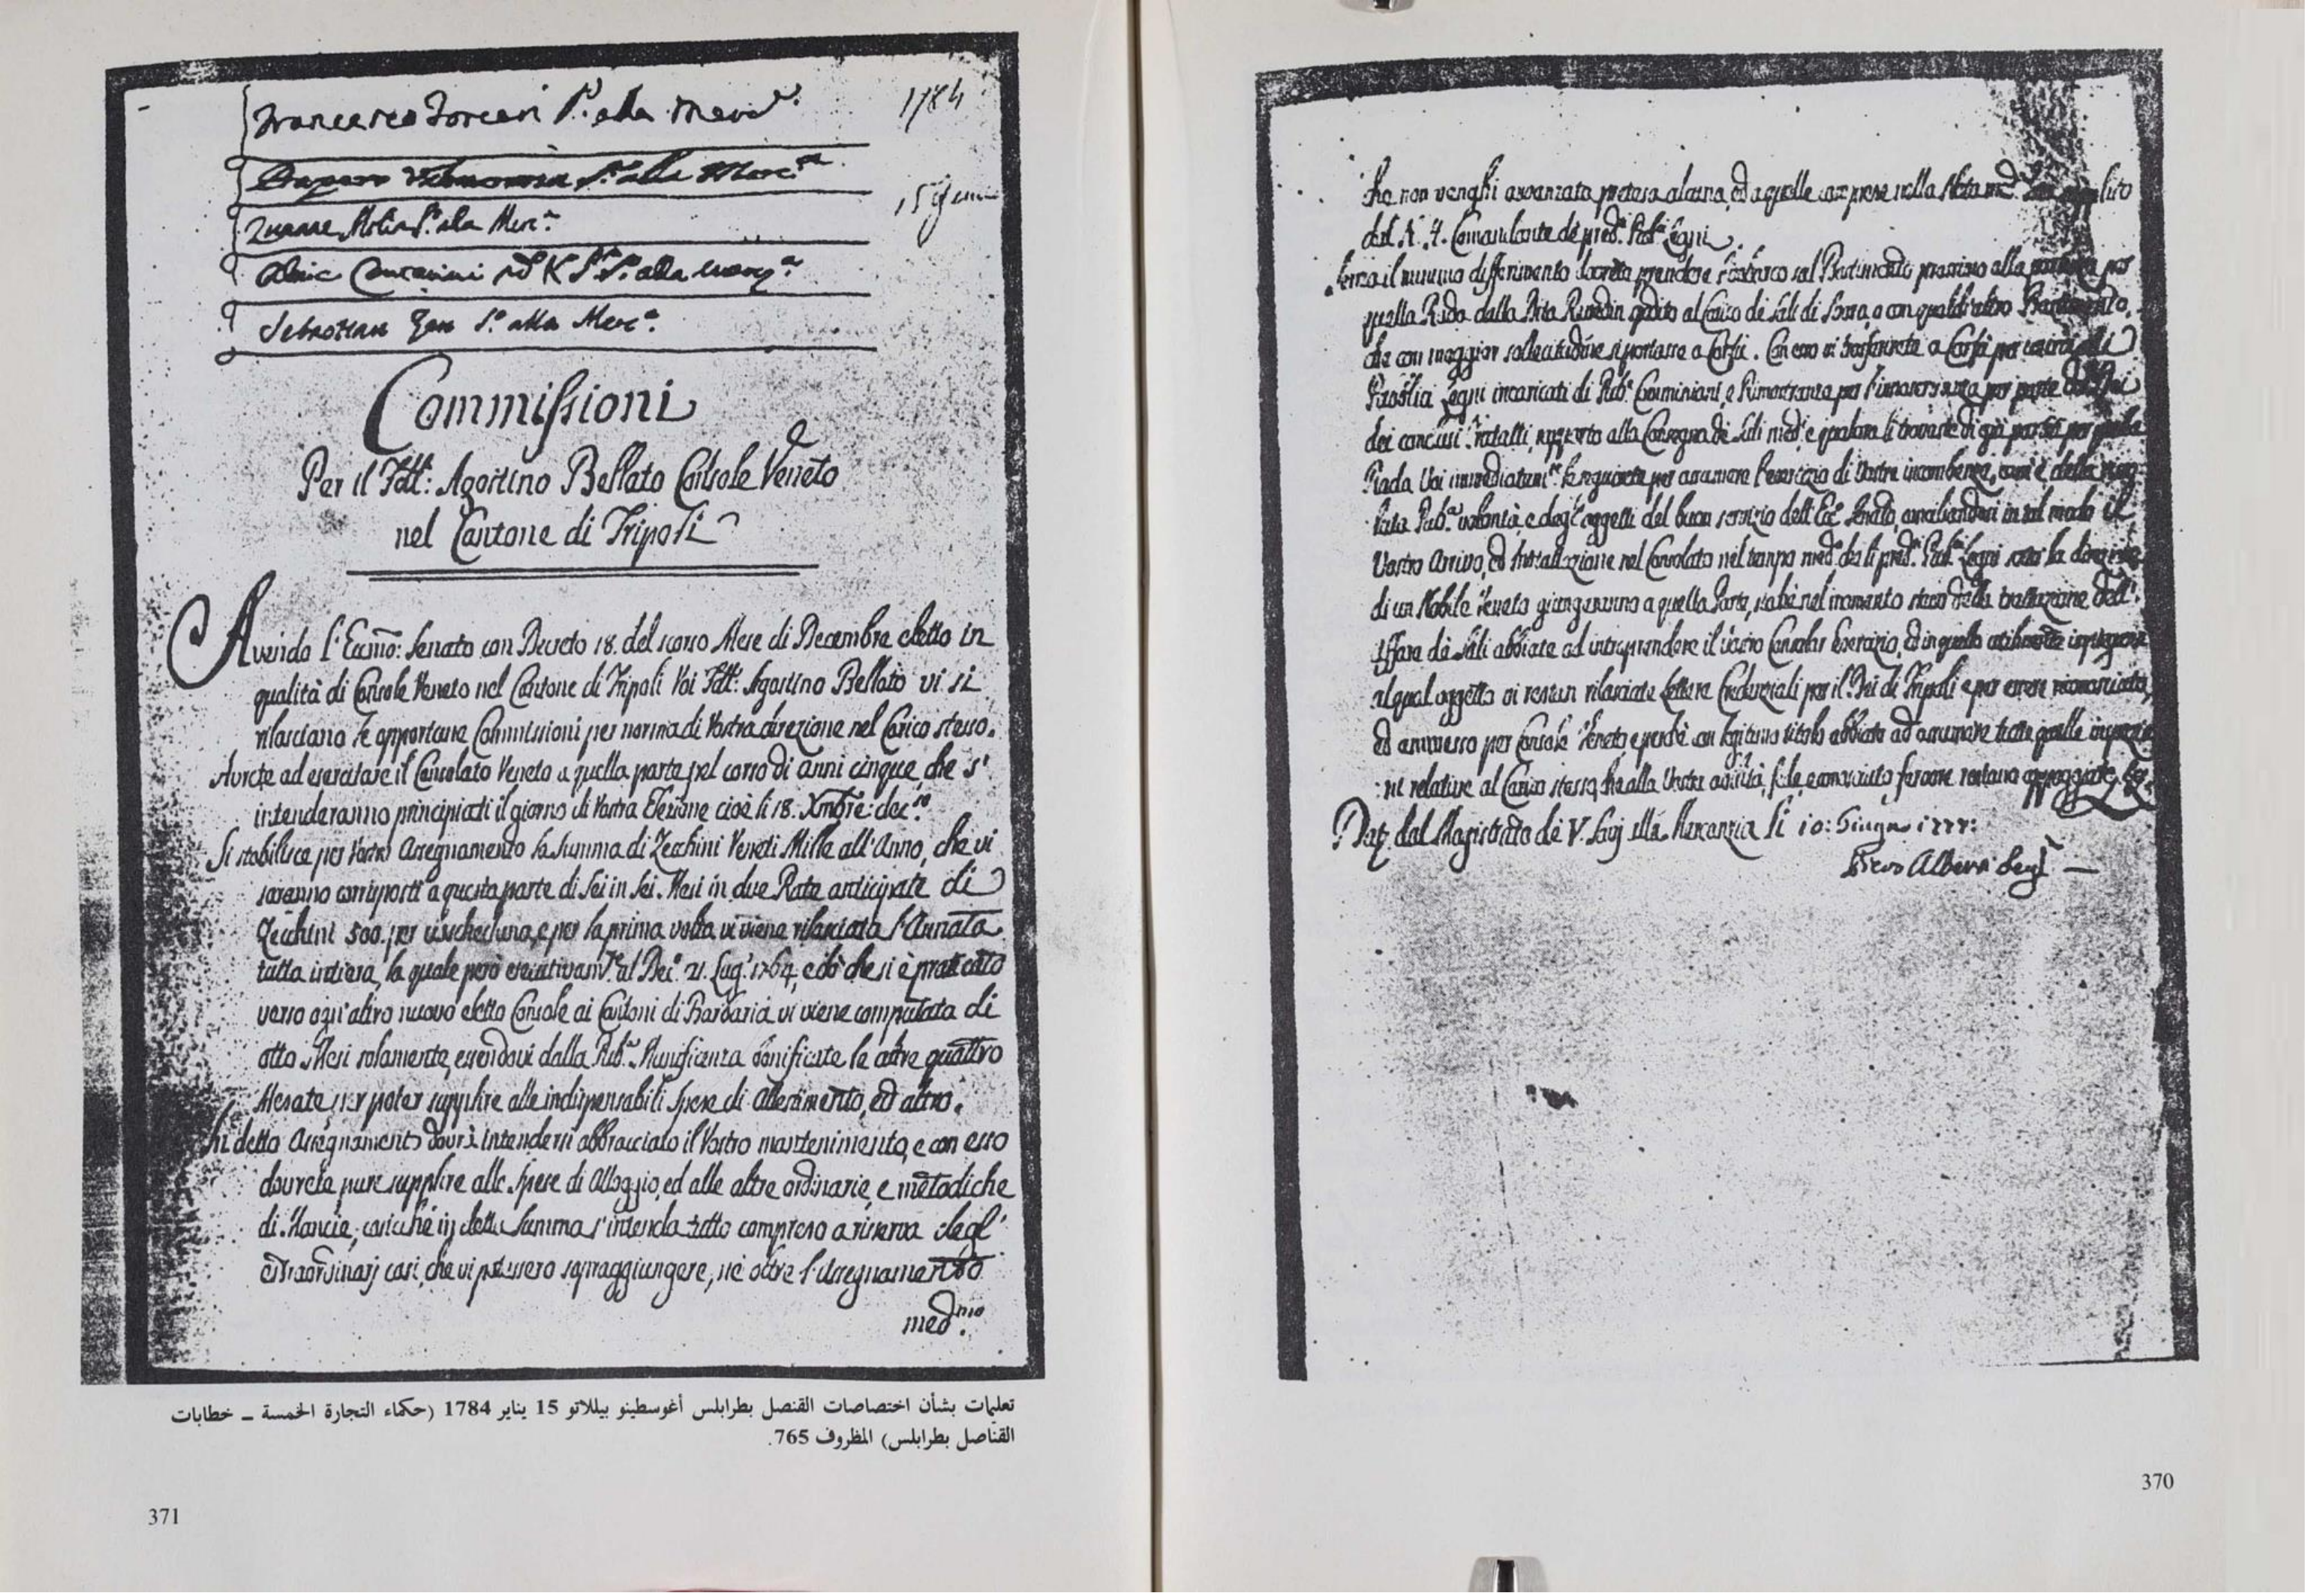 che non venghi avvanzata pretesa alcuna, ed a quelle comprese nella Nota
del N. H. Comandante de pred.ti Pub.ci Legni.
senza il minimo differimento dovrete prendere l'imbarco sul Bastimento prossimo alla per
quella Rada dalla Dita spedito al Carico de Sali di o con qualch'altro Bastimento,
che con maggior sollecitudine si portasse a Corfù. Con esso vi trasferirete a Corfù per
Legni incaricati di Pub.e Commissioni, e Rimostranze per l'inosservanza per parte del Bei
dei conclusi Trattati, rapporto alla Consegna de Sali med.i e qualora li trovaste di già partiti per quella
Rada Voi immediatam.te li seguirete per assumere l'esercizio di Vostre incombenze,
Pub.a volontà, e degl'oggetti del buon servizio dell'Ecc.o Senato, conciliandosi in tal modo il
Vostro Arrivo, ed Installazione nel Consolato nel tempo med.o che li pred.ti Pub.ci Legni sotto la direzione
di un Nobile Veneto giungeranno a quella Parte,
Affare de Sali abbiate ad intraprendere il vostro Consolar Esercizio, ed in quello utilmente
al qual oggetto vi restan rilasciate Lettere Credenziali per il Bei di Tripoli e per essere riconosciuto,
ed ammesso per Console Veneto, e perchè con legitimo titolo abbiate ad assumere tutte quelle
relative al Carico stesso, che alla Vostra abilità, fede, e conosciuto fervore restano appoggiate.
Dat. dal Magistrato de V. Savj alla Mercanzia li 10: Giugno
370
1784
15
Francesco P. alla Merc.a
S.o alla Merc.a
Zuanne S.o alla Merc.a
Alvise Contarini K S.o alla Merc.a
Sebastian Zen S.o alla Merc.a
Commissioni
Per il Fdt: Agostino Bellato Console Veneto
nel Cantone di Tripoli
Avendo l'Eccmo: Senato con Decreto 18. del scorso Mese di Decembre eletto in
qualità di Console Veneto nel Cantone di Tripoli Voi Fdt: Agostino Bellato vi si
rilasciano le opportune Commissioni per norma di Vostra direzione nel Carico stesso.
Avrete ad esercitare il Consolato Veneto a quella parte pel corso di anni cinque, che s'
intenderanno principiati il giorno di Vostra Elezione cioè li 18. Xmbre: dec.so
Si stabilisce per Vostro Assegnamento la summa di Zecchini Veneti Mille all'Anno, che vi
saranno corrisposti a questa parte di sei in sei Mesi in due Rate anticipate di
Zecchini 500. per cadauna, e per la prima volta vi viene rilasciata l'Annata
tutta intiera, la quale però esecutivam.te al Dec.o 21. Lug.o 1764, e a ciò che si è praticato
verso ogn'altro nuovo eletto Console ai Cantoni di Barbaria vi viene computata di
otto Mesi solamente, essendovi dalla Pub.a Munificenza bonificate le altre quattro
Mesate per poter supplire alle indispensabili spese di allestimento, ed altro.
In detto Assegnamento dovrà intendersi abbracciato il Vostro mantenimento, e con esso
dovrete pure supplire alle spese di Alloggio, ed alle altre ordinarie, e metodiche
di Mancie, cosicchè in detta Summa s'intenda tutto compreso a riserva degl'
estraordinarj casi, che vi potessero sopraggiungere, nè oltre l'Assegnamento
med.mo
تعليمات بشأن اختصاصات القنصل بطرابلس أغوسطينو بيللاتو 15 يناير 1784 (حكماء التجارة الخمسة ــ خطابات
القناصل بطرابلس) المظروف 765.
371